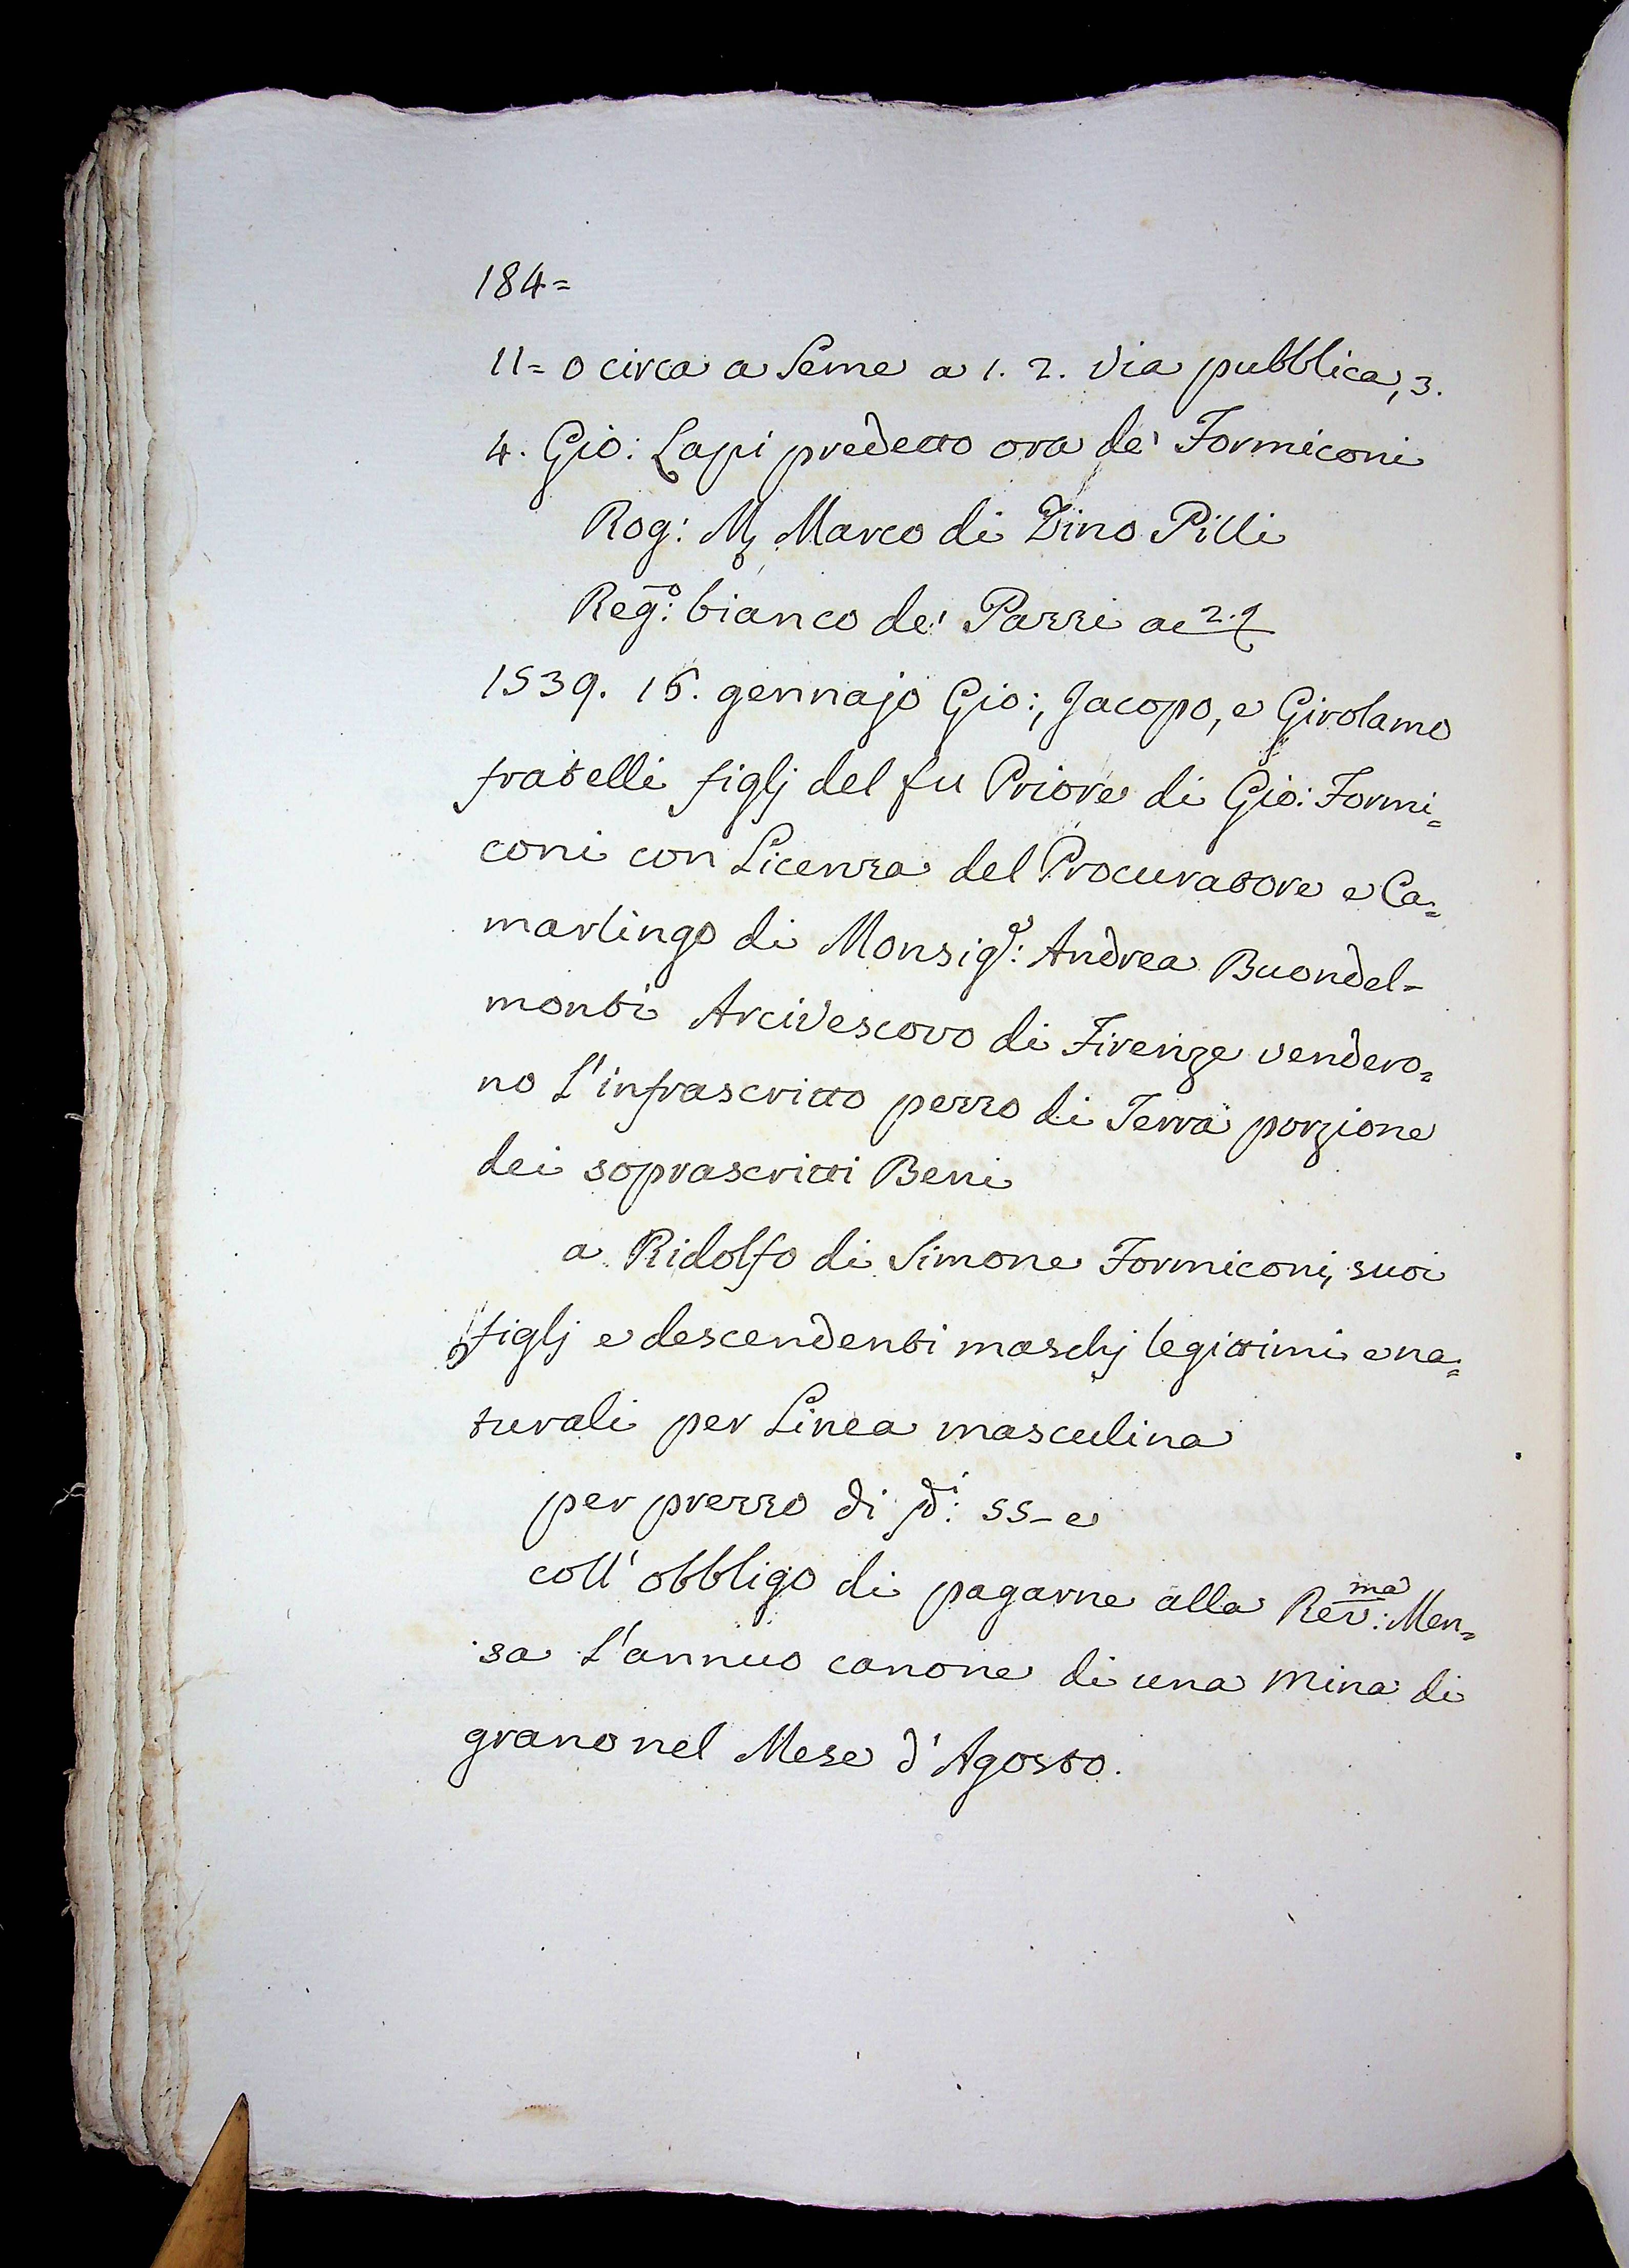 184=
11= o circa a Seme a 1. 2. via pubblica, 3.
4. Gio: Lapi predetto ora de' Formiconi
Rog: M, Marco di Dino Pilli
Reg.o: bianco de' Pazzi a
1539. 16. gennajo Gio:, Jacopo, e Girolamo
fratelli figlj del fu Priore di Gio: Formi=
coni con Licenza del Procuratore e Ca=
marlingo di Monsig.e: Andrea Buondel-
monti Arcivescovo di Firenze vendero=
no l'infrascritto pezzo di Terra porzione
dei soprascritti Beni
a Ridolfo di Simone Formiconi, suoi
figlj e descendenti maschj legittimi e na=
turali per Linea masculina
per prezzo di 55- e
coll' obbligo di pagarne alla Rev.ma: Men=
sa l'annuo canone di una Mina di
grano nel Mese d'Agosto.